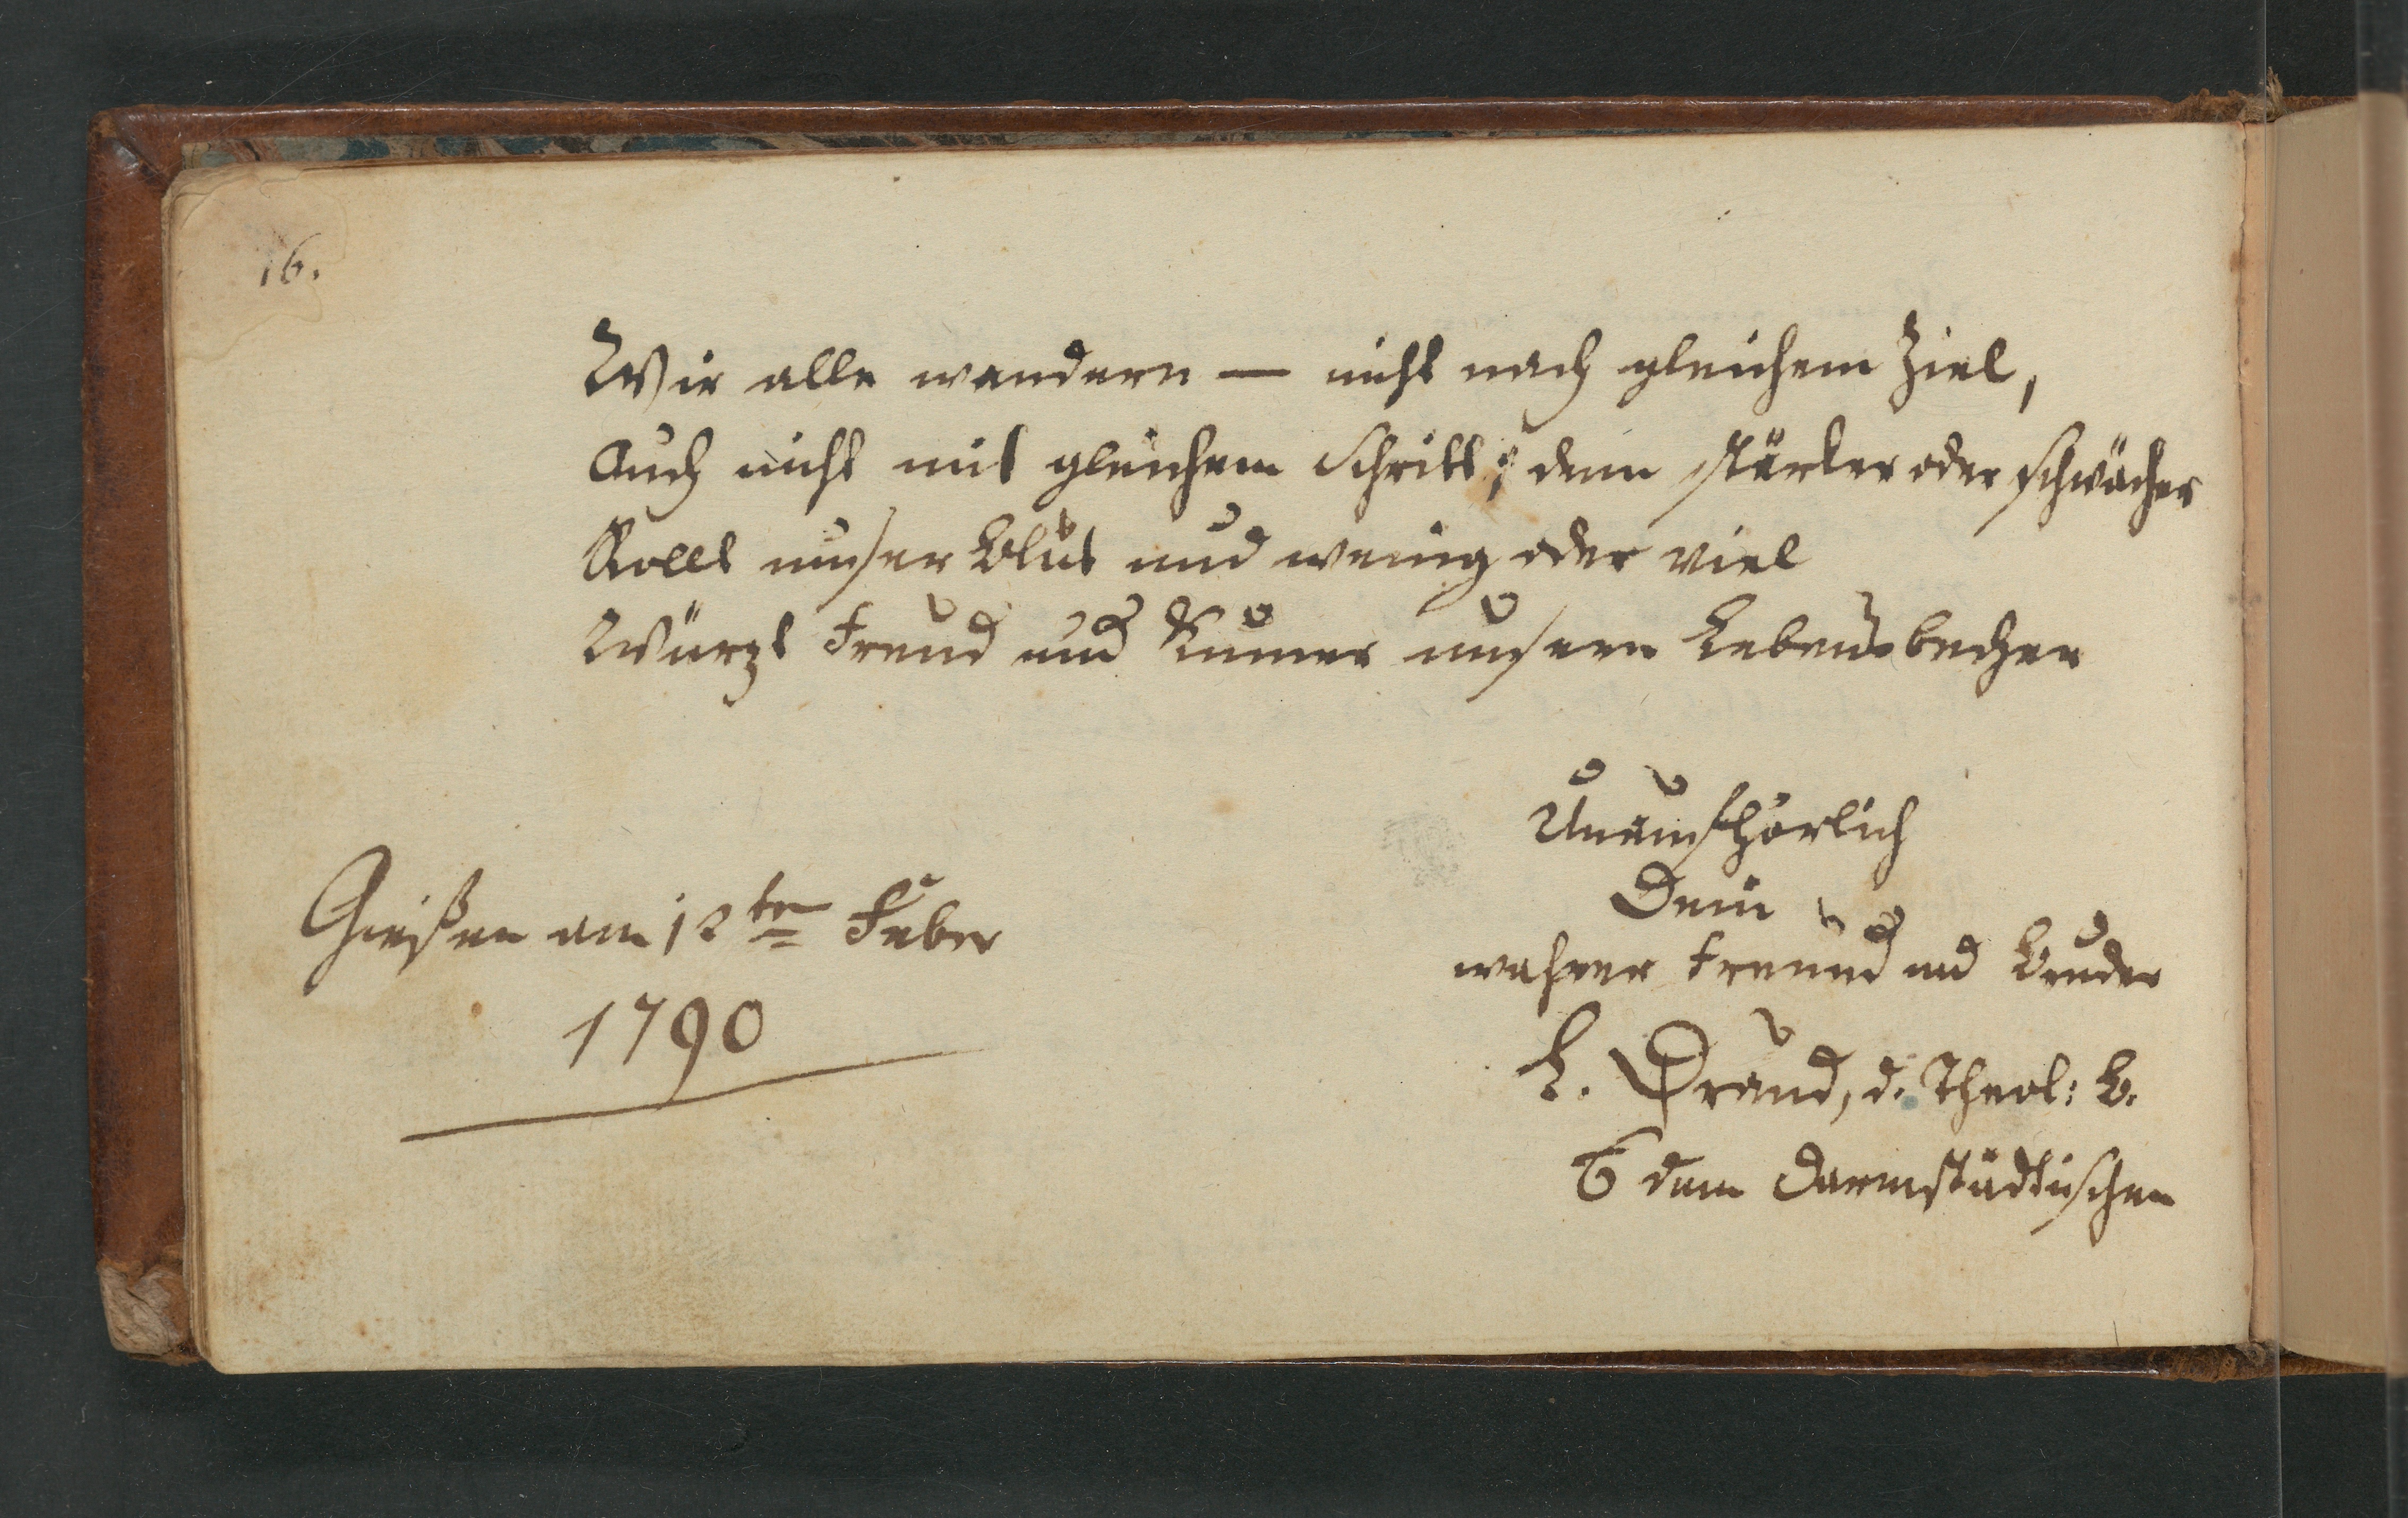 16.
Wir alle wandern — nicht nach gleichem Ziel,
Auch nicht mit gleichem Schritt; denn stärker oder schwächer
Rollt unser Blut und wenig oder viel
Würzt Freud und Kumer unsern Lebensbecher
Unaufhörlich
Dein
wahrer Freund und Bruder
Draud, d. Theol: B.
dem Darmstädtischen
Gießen am 12ten Feber
1790